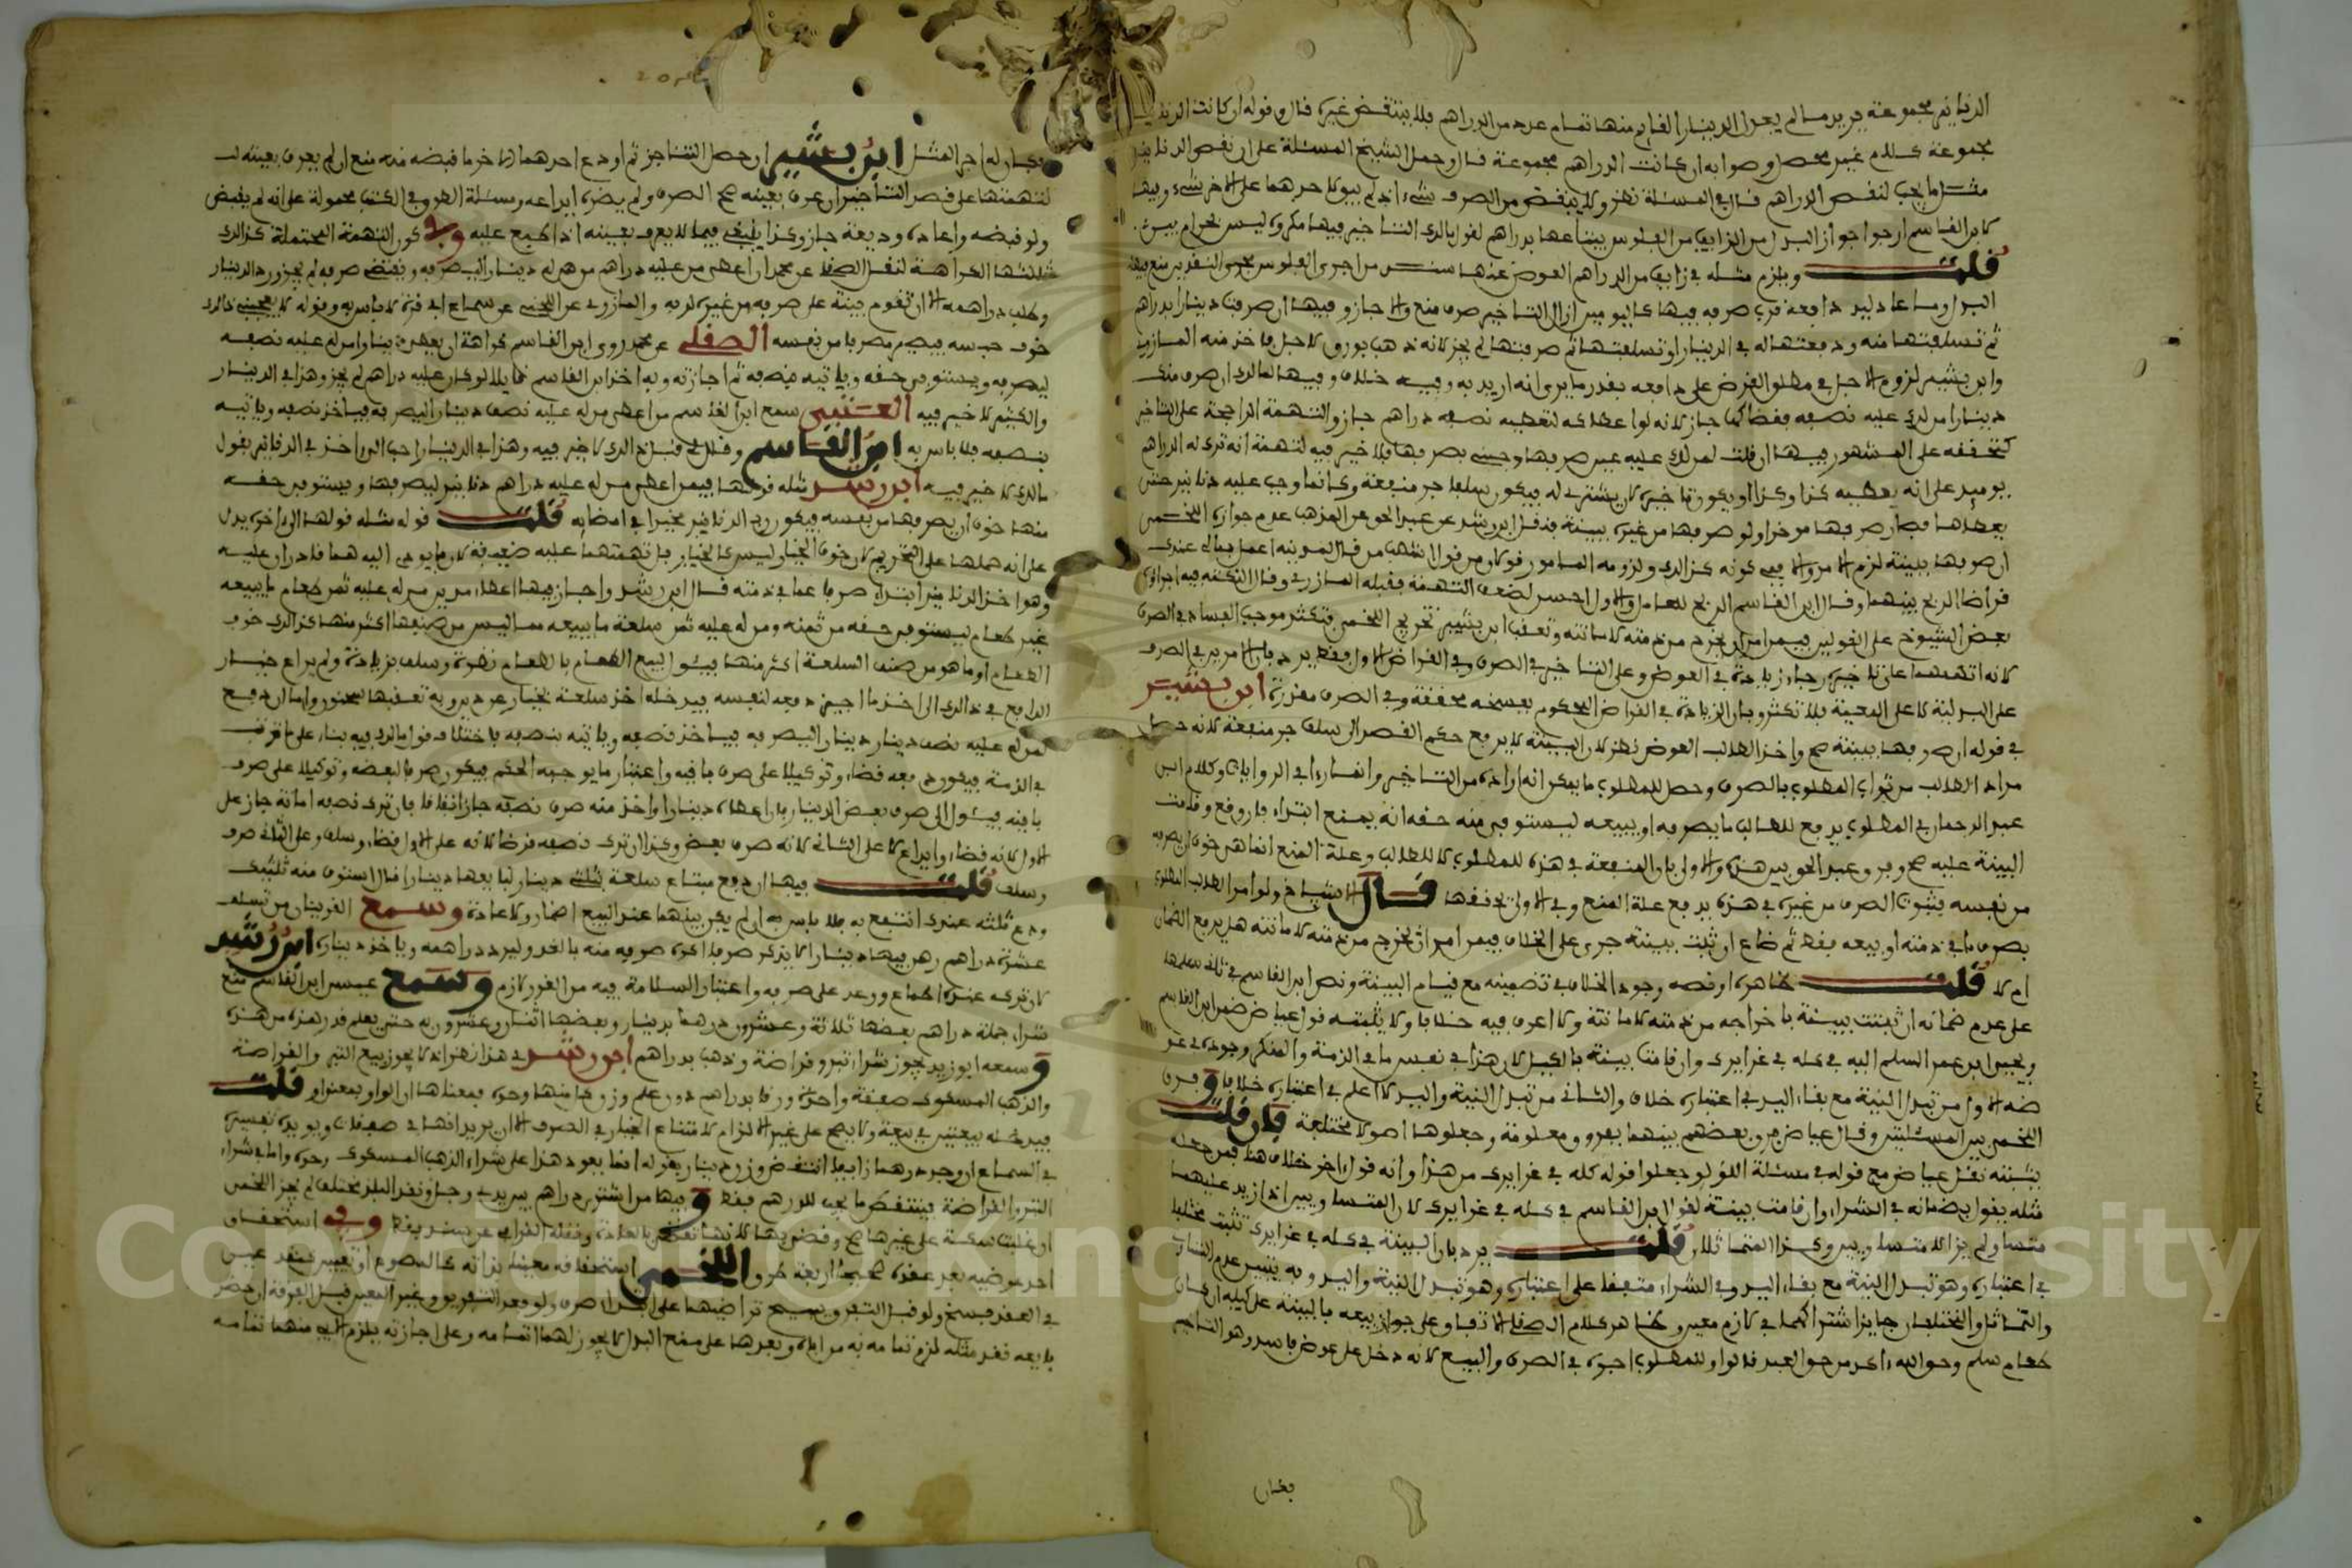 الدنانير مجموعة يريد ما لم يعدل الدينار القايم منها تمام عدد من الدراهم فلا ينتقض غيره قال وقوله ان كانت الدنانير
مجموعة كلام غير محصل وصوابه ان كانت الدراهم مجموعة قال وحمل الشيخ المسئلة على ان نقص الدنانير
مثل ما يجب لنقص الدراهم قال في المسئلة نظر ولا ينتقض من الصرف شيء اذ لم يبق لاحدهما على الاخر شيء وفيها
لابن القاسم ارجوا جواز البدل من الزايف من الفلوس يبتاعها بدراهم لقول مالك التاخير فيها مكروه ليس بحرام بين
قلت ويلزم مثله في زايف من الدراهم العوض عنها
البدل وما عادليد دافعه قرب صرفه فيها كاليومين ازال التاخير صرف منع والا جاز وفيها ان صرفت دينارا بدراهم
ثم تسلفتها منه ودفعتها له في الدينار او تسلفتها ثم صرفتها لم يجز لانه ذهب بورق لاجل فاخذ منه المازري
وابن بشير لزوم الاجل في مطلق القرض على دافعه بقدر ما يرى انه اريد به وفيه خلاف وفيها لمالك ان صرف منك
دينارا من لك عليه نصفه فقضاكها جاز لانه لو اعطاكه لتعطيه نصفه دراهم جاز والتهمة الراجحة على التاخير
كتحققه على المشهور فيها ان قلت لمن لك عليه عين صرفها وجئني بصرفها فلا خير فيه لتهمة انه ترك له الدراهم
يوميذ على انه يعطيه كذا وكذا او يكون تاخيره لان يشتري له فيكون سلفا جر منفعة وكانما وجب عليه دنانير حتى
يعطاها فصار صرفها مؤخرا ولو صرفها من غيره ببينة فنقل ابن رشد عن عبد الحق عن المذهب عدم جوازه اللخمي
ان صرفها ببينة لزم الامر والا ففي كونه كذلك ولزومه المامور قولان من قول اشهب من قال لمدينه اعمل بمالي عندك
قراضا الربح بينهما وقال ابن القاسم الربح للعامل والاول احسن لضعف التهمة فقبله المازري وقال التكلفة فيه اجراؤه
بعض الشيوخ على القولين فيمن امر ان يخرج من ذمته لامانته وتعقب ابن بشير تخريج اللخمي بتكثر موجب الفساد في الصرف
لانه اتهمهما على تاخيره رجاء زيادة في العوض وعلى التاخير في الصرف وفي القراض الاول فقط يرد بان الامرين في الصرف
على البدلية لا على المعية فلا تكثر وبان الزيادة في القراض المحكوم بفسخه محققة وفي الصرف مقدرة ابن بشير
في قوله ان صرفها ببينة صح واخذ الطالب العوض نظر لان البينة لا يرفع حكم القصد الى سلف جر منفعة لانه حصل
مراد الطالب من ثواب المطلوب بالصرف وحصل للمطلوب ما يمكن انه اراده من التاخير وانما راءا في الروايات وكلام ابن
عبد الرحمان في المطلوب يدفع للطالب ما يصرفه او يبيعه ليستوفي منه حقه انه يمنع ابتداء فان وقع وقامت
البينة عليه صح وفرق عبد الحق بين هذه والاولى بان المنفعة في هذه للمطلوب لا للطالب وعلة المنع انما هي خوف ان يصرفه
من نفسه فثبوت الصرف من غيره في هذه يرفع علة المنع وفي الاولى يحققها قال الاشياخ ولو امر الطالب المطلوب
بصرف ما في ذمته او بيعه فقط ثم ضاع ان ثبت ببينة جرى على الخلاف فيمن امر ان يخرج من ذمته لامانته هل يرفع الضمان
ام لا قلت ظاهره او نصه وجود الخلاف في تضمينه مع قيام البينة ونص ابن القاسم في ثالث سلمها
على عدم ضمانه ان ثبتت ببينة باخراجه من ذمته لامانته ولا اعرف فيه خلافا ولا يثبته قول عياض ضمن ابن القاسم
ويحيى ابن عمر المسلم اليه في كيله في غرايرك وان قامت بينة بالكيل لان هذا في نفسير ما في الذمة والمنكر وجوده في غر
ضه الاول من تبدل النية مع بقاء اليد في اعتباره خلاف والثاني من تبدل النية واليد لا اعلم في اعتباره خلافا وفرق
اللخمي بين المسئلتين وقال عياض فرق بعضهم بينهما بفروق معلومة وجعلوها اصولا مختلفة فان قلت
يثبته نقل عياض مع قوله في مسئلة اللؤلؤ جعلوا قوله كله في غرايرك من هذا وانه قول اخر خلاف هنا فمن جعله
مثله يقول بضمانه في الشراء وان قامت بينة لقول ابن القاسم في كله في غرايرك لان المتساويين اذا زيد عليهما
متساو لم يزالا متساويين وكذا المتماثلان قلت يرد بان البينة في كله في غرايرك تثبت مختلفا
في اعتباره وهو تبدل النية مع بقاء اليد وفي الشراء متفقا على اعتباره وهو تبدل النية واليد وبه يتبين عدم التساوي
والتماثل والمختلفان جايز اشتراكهما في لازم معين وظاهر كلام الصقلي الاتفاق على جواز بيعه بالبينة على كيله ان كان
طعام سلم وحوالته اخر من حق العبد قالوا وللمطلوب اجره في الصرف والبيع لانه دخل على عوض فاسد وهو التاخير
فكان
فكان له اجر المثل ابن بشير ان حصل التناجز ثم اودع احدهما الاخر ما قبضه منه منع ان لم يعرف بعينه
لتهمتهما على قصد التاخير ان عرف بعينه صح الصرف ولم يضره ايداعه ومسئلة الصرف في الكتب محمولة على انه لم يقبض
ولو قبضه واعاده وديعة جاز وكذا ينبغي فيما لا يعرف بعينه اذا طبع عليه وفي كون التهمة المحتملة كذلك
ثالثها الكراهة لنقل الصقلي عن محمد ان اعطى من عليه دراهم من هي له دينارا ليصرفه ويقتضي صرفه لم يجز ورد الدينار
وطلب دراهمه الا ان تقوم بينة على صرفه من غيره لربه والمازري عن اللخمي عن سماع ابي قرة لا باس به وقوله لا يعجبني ذلك
خوف حبسه فيصير مصرفا من نفسه الصقلي عن محمد روى ابن القاسم كراهة ان يعطي دينارا من له عليه نصفه
ليصرفه ويستوفي حقه وياتيه بنصفه ثم اجازته وبه اخذ ابن القاسم قايلا لو كان عليه دراهم لم يجز وهذا في الدينار
والكثير لا خير فيه العتبي سمع ابن القاسم من اعطى من له عليه نصف دينار دينارا ليصرفه فياخذ نصفه وياتيه
بنصفه فلا باس به ابن القاسم وقال لي قبل ذلك لا خير فيه وهذا في الدينار احب الي واخذ في الدنانير بقول
مالك لا خير فيه ابن رشد مثله قولها فيمن اعطى من له عليه دراهم دنانير ليصرفها ويستوفي حقه
منها خوف ان يصرفها من نفسه فيكون رب الدنانير مخيرا في امضايه قلت قوله مثله قولها الى اخره يدل
على انه حملها على التحريم لان خوف الخيار ليس كالخيار بل تهمتهما عليه ضعيفة لان ما يومى اليه هما قادران عليه
وهو اخذ الدنانير ابتداء صرفا عما في ذمته قال ابن رشد واجاز فيها اعطاء مدين من له عليه ثمن طعام ما يبيعه
غير طعام ليستوفي حقه من ثمنه ومن له عليه ثمن سلعة ما يبيعه مما ليس من صنفها اكثر منها كذلك خوف
الطعام او ما هو من صنف السلعة اكثر منها فيئول لبيع الطعام بالطعام نظرة وسلف بزيادة ولم يراع خيار
الدافع في ذلك الى اخذ ما اجيز دفعه لنفسه فيدخله اخذ سلعة بخيار عن دين وبه تعقبها سحنون واما ان دفع
لمن له عليه نصف دينار دينارا ليصرفه فياخذ نصفه وياتيه بنصفه باختلاف قول مالك فيه بناء على ما ترتب
في الذمة فيكون دفعه قضاء وتوكيلا على صرف باقيه واعتبار ما يوجبه الحكم فيكون صرفا لبعضه وتوكيلا على صرف
باقيه فيئول الى صرف بعض الدينار فان اعطاه دينارا واخذ منه صرف نصفه جاز اتفاقا فان ترك نصفه امانة جاز على
الاول لانه قضاء وايداع لا على الثاني لانه صرف بعض وكذا ان ترك نصفه قرضا لانه على الاول قضاء وسلف وعلى الثاني صرف
وسلف قلت فيها ان دفع مبتاع سلعة بثلثي دينار لبايعها دينارا فقال استوف منه ثلثيك
ودع ثلثه عندك انتفع به فلا باس به ان لم يكن بينهما عند البيع اضمار ولا عادة وسمع القرينان من تسلف
عشرة دراهم رهن فيها دينارا لا يذكر صرفا اكره صرفه منه بالغد وليردد دراهمه وياخذ ديناره ابن رشد
لان تركه عنده اطماع ووعد على صرفه واعتبار السلامة فيه من الغرر لازم وسمع عيسى ابن القاسم منع
شراء جملة دراهم بعضها ثلاثة وعشرون درهما بدينار وبعضها اثنان وعشرون به حتى يعلم قدر هذه من هذه
وسمعه ابو زيد يجوز شراء تبر وقراضة وذهب بدراهم ابن رشد في هذا نظر اذ لا يجوز بيع التبر والقراضة
والذهب المسكوك صفقة واحدة وزنا بدراهم دون علم وزن كل منها وحده فمعناها ان الواو بمعنى او قلت
فيدخله بيعتين في بيعة ولا يصح على غير الالزام لامتناع الخيار في الصرف الا ان يريد انها في صفقات ويؤيده تفسيره
في السماع ان وجد درهما زايفا انتقض وزن دينار بقوله انما يعود هذا على شراء الذهب المسكوك وحده واما في شراء
التبر والقراضة فينتقض ما يجب للدرهم فقط وفيها من اشترى دراهم بين يديه وجل ونقد البلد مختلف لم يجز اللخمي
ان غلبت سكة على غيرها صح وقضى بها لانها نقد بالعادة ونقله القرافي عن سند فقط وفي استحقاق
احد عوضيه بعد عقده صحيحا اربعة طرق اللخمي استحقاقه معينا بذاته كالمصوغ او تعيين بنقد عين
في العقد فسخ ولو قبل التفرق ويصح تراضيهما على البدل صرف ولو بعد التفرق وغير المعين قبل الفرقة ان حضر
بايعه نقد مثله لزم تمامه به من اباه وبعدها على منع البدل لا يجوز لهما اتمامه وعلى اجازته يلزم الابي منهما تمامه